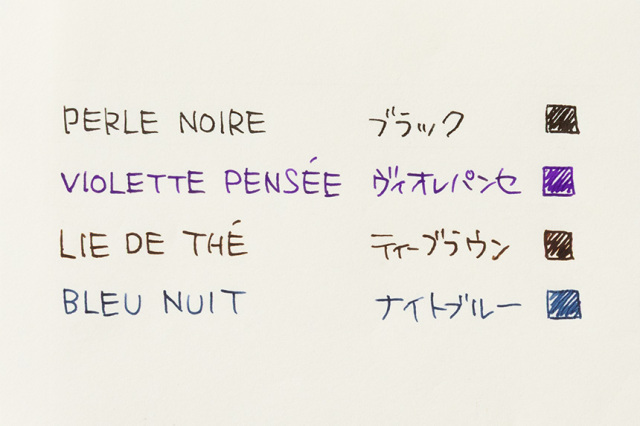 PERLE NOIRE ブラック
VIOLETTE PENSÉE ヴィオレパンセ
LIE DE THÉ ティーブラウン
BLEU NUIT ナイトブルー